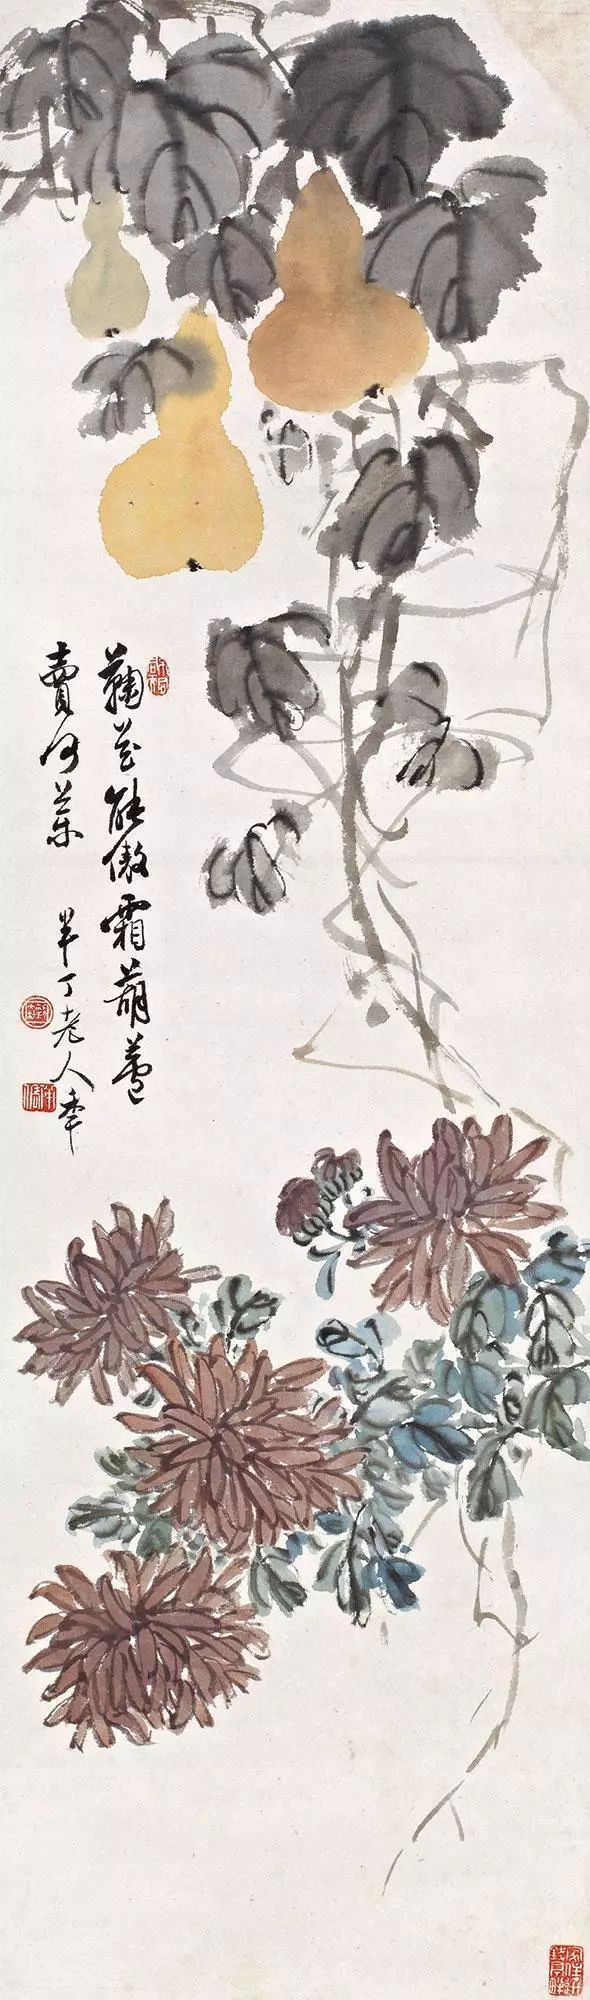 鞠花能傲霜葫蘆
賣何藥 半丁老人